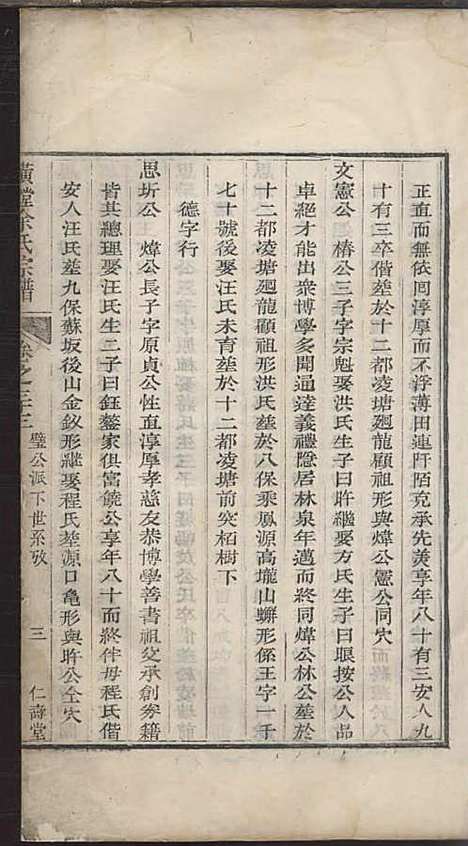 正直而無依回淳厚而不浮薄田連阡陌克承先美享年八十有三安人九
十有三卒偕塟於十二都凌塘廻龍顧祖形與煒公憲公同穴
文憲公 椿公三子字宗魁娶洪氏生子曰昨繼娶方氏生子曰眼按公人品
卓絕才能出衆博學多聞通達義禮隱居林泉年邁而終同煒公林公塟於
十二都凌塘廻龍顧祖形洪氏塟於八保乘鳳源高壠山螄形係王字一千
七十號後娶汪氏未育塟於十二都凌塘前突栢樹下
德字行
思圻公 煒公長子字原貞公性直淳厚孝慈友恭博學善書祖父承創叅籍
皆其總理娶汪氏生二子曰鈺鏊家俱富饒公享年八十而終伴母程氏偕
安人汪氏塟九保蘇坂後山金釵形繼娶程氏塟源口亀形與昨公仝穴
黃墩余氏宗譜
卷之三十三
璧公派下世系攷
三
仁壽堂